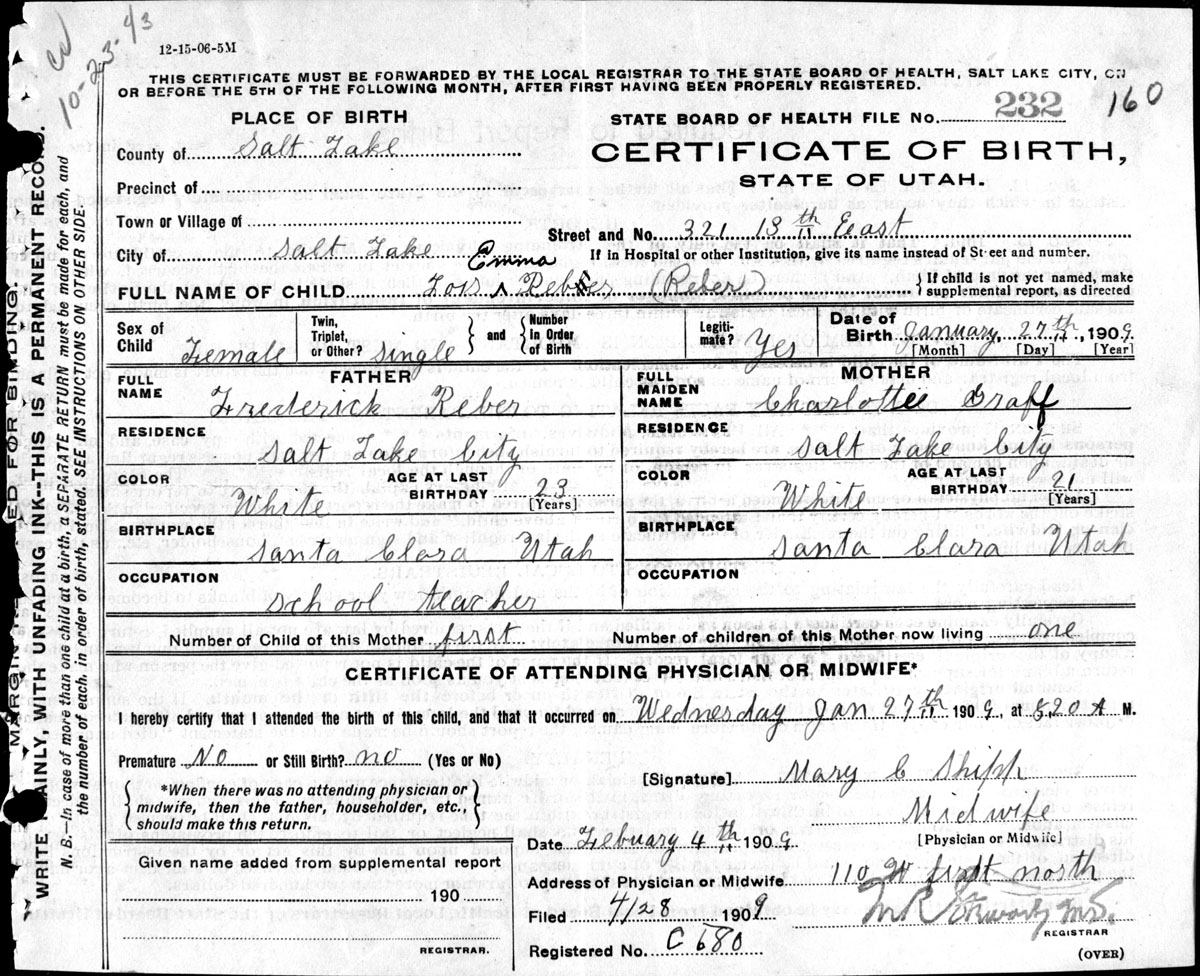 10-23-43
12-15-06-5M
THIS CERTIFICATE MUST BE FORWARDED BY THE LOCAL REGISTRAR TO THE STATE BOARD OF HEALTH, SALT LAKE CITY, ON
OR BEFORE THE 5TH OF THE FOLLOWING MONTH, AFTER FIRST HAVING BEEN PROPERLY REGISTERED.
PLACE OF BIRTH
STATE BOARD OF HEALTH FILE NO. 232 160
County of Salt Lake
CERTIFICATE OF BIRTH,
STATE OF UTAH.
Precinct of
Town or Village of
Street and No. 321 13th East
City of Salt Lake
If in Hospital or other Institution, give its name instead of Street and number.
Emma
FULL NAME OF CHILD Lois ^ Reber (Reber) { If child is not yet named, make supplemental report, as directed
Sex of Child Female
Twin, Triplet, or Other? Single } and { Number in Order of Birth
Legiti-mate? Yes
Date of Birth January, 27th, 1909
[Month] [Day] [Year]
FATHER
FULL NAME Frederick Reber
RESIDENCE Salt Lake City
COLOR White
AGE AT LAST BIRTHDAY 23 [Years]
BIRTHPLACE Santa Clara Utah
OCCUPATION School teacher
MOTHER
FULL MAIDEN NAME Charlottee Graff
RESIDENCE Salt Lake City
COLOR White
AGE AT LAST BIRTHDAY 21 [Years]
BIRTHPLACE Santa Clara Utah
OCCUPATION
Number of Child of this Mother first
Number of children of this Mother now living one
CERTIFICATE OF ATTENDING PHYSICIAN OR MIDWIFE*
I hereby certify that I attended the birth of this child, and that it occurred on Wednesday Jan 27th 1909, at 820 A M.
Premature No or Still Birth? no (Yes or No)
*When there was no attending physician or midwife, then the father, householder, etc., should make this return.
[Signature] Mary C Shipp
Midwife
[Physician or Midwife]
Date February 4th 1909
Given name added from supplemental report
190
REGISTRAR.
Address of Physician or Midwife 110 W first north
Filed 4/28 1909
Registered No. C 680
REGISTRAR
(OVER)
MARGIN RESERVED FOR BINDING.
WRITE PLAINLY, WITH UNFADING INK--THIS IS A PERMANENT RECORD.
N. B.--In case of more than one child at a birth, a SEPARATE RETURN must be made for each, and
the number of each, in order of birth, stated. SEE INSTRUCTIONS ON OTHER SIDE-